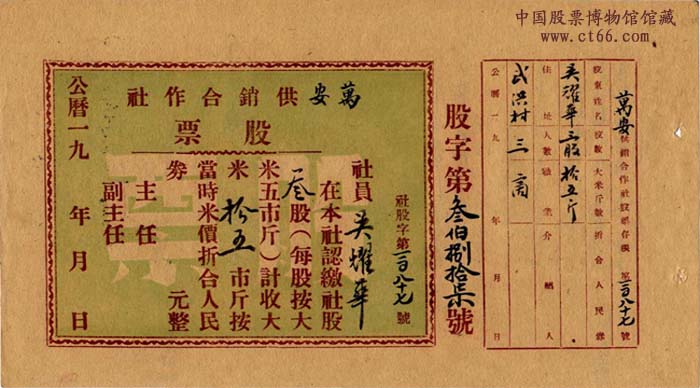 中国股票博物馆馆藏
www.ct66.com
萬安供銷合作社
股票
社股字第一百八十七號
社員吳耀華
在本社認繳社股
叁股（每股按大
米五市斤）計收大
米拾五市斤按
當時米價折合人民
券 元整
主任
副主任
公曆一九 年 月 日
股字第叁佰捌拾柒號
萬安供銷合作社股票存根 第一百八十七號
股東姓名 股數 大米斤數 折合人民券
吳耀華 三股 拾五斤
住址 人數 職業 介紹人
武洪村 三 商
公曆一九 年 月 日